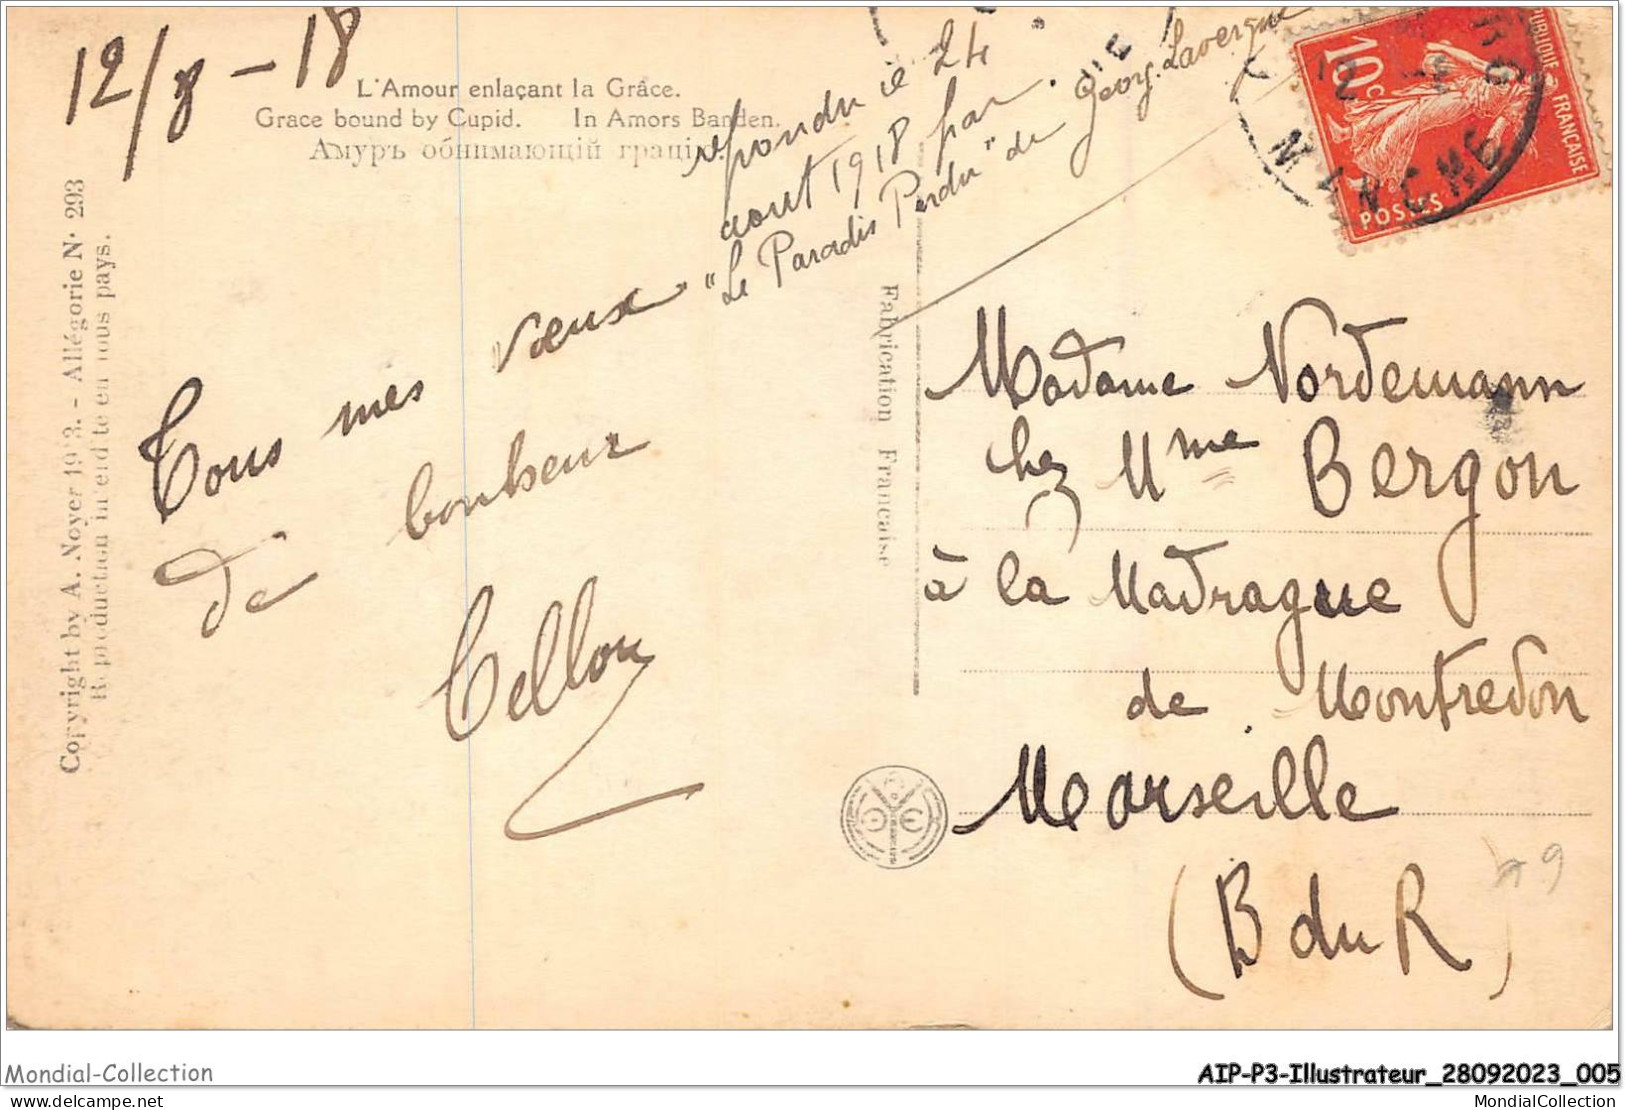 12/8-18
L'Amour enlaçant la Grâce.
Grace bound by Cupid. In Amors Banden.
Амуръ обнимающій грацію.
repondu le 24
aout 1918 par
"Le Paradis Perdu" de Georg. Lavergne
Tous mes vœux
de bonheur
Copyright by A. Noyer 1913. - Allégorie N· 293
Reproduction interdite en tous pays.
Fabrication Française
10c
POSTES
RÉPUBLIQUE FRANÇAISE
Madame Nordemann
chez Mme Bergon
à la Madrague
de Montredon
Marseille
(B du R)
49
Mondial-Collection
AIP-P3-Illustrateur_28092023_005
delcampe.net
MondialCollection